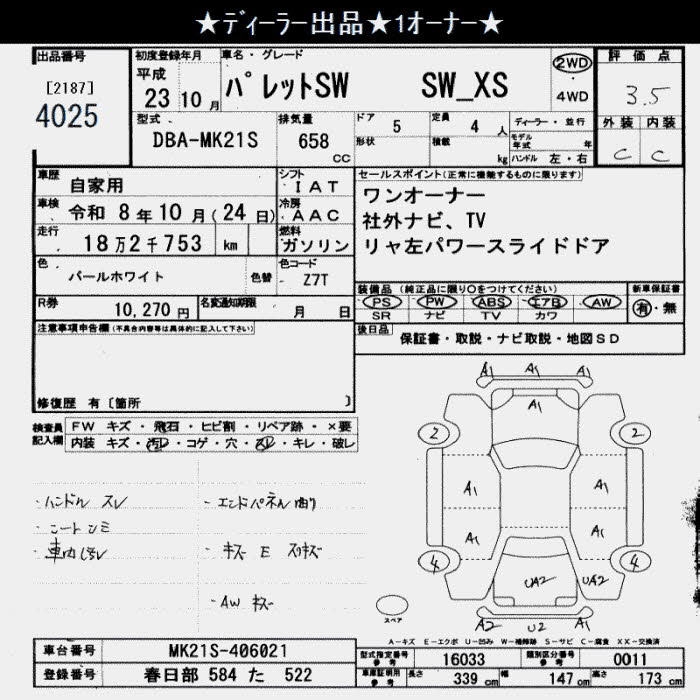 ★ディーラー出品★1オーナー★
出品番号
[2187]
4025
初度登録年月
平成
23 10 月
車名・グレード
パレットSW SW_XS
2WD
・
4WD
評価点
3.5
外装 内装
C C
型式
DBA-MK21S
排気量
658
cc
ドア 5
形状
定員 4 人
積載 kg
ディーラー・並行
モデル年式 年
ハンドル 左・右
車歴
自家用
シフト
IAT
車検
令和 8 年 10 月 ( 24 日)
冷房
AAC
走行
18 万 2 千 753 km
燃料
ガソリン
色
パールホワイト
色替
色コード
Z7T
R券
10,270 円
名変通知期限
月 日
セールスポイント(正常に機能するものに限ります)
ワンオーナー
社外ナビ、TV
リヤ左パワースライドドア
装備品 (純正品に限り○をつけてください)
PS PW ABS エアB AW
SR ナビ TV カワ
新車保証書
有・無
後日品
保証書・取説・ナビ取説・地図SD
注意事項申告欄(不具合内容等は具体的に記入して下さい)
修復歴 有 [箇所 ]
検査員記入欄
FW キズ・飛石・ヒビ割・リペア跡・×要
内装 キズ・汚レ・コゲ・穴・スレ・キレ・破レ
・ハンドル スレ
・シートシミ
・車内汚レ
・エンドパネル曲り
・キズ E スリキズ
・AW キズ
A1 A1 A1
A1
2 2
A1 A1
A1 A1
4 4
UA2 UA2
A2 U2 A1
スペア
A-キズ E-エクボ U-凹み W-補修跡 S-サビ C-腐食 XX-交換済
車台番号
MK21S-406021
登録番号
春日部 584 た 522
型式指定番号
参考
16033
類別区分番号
参考
0011
車庫証明用
参考
長さ 339 cm 幅 147 cm 高さ 173 cm